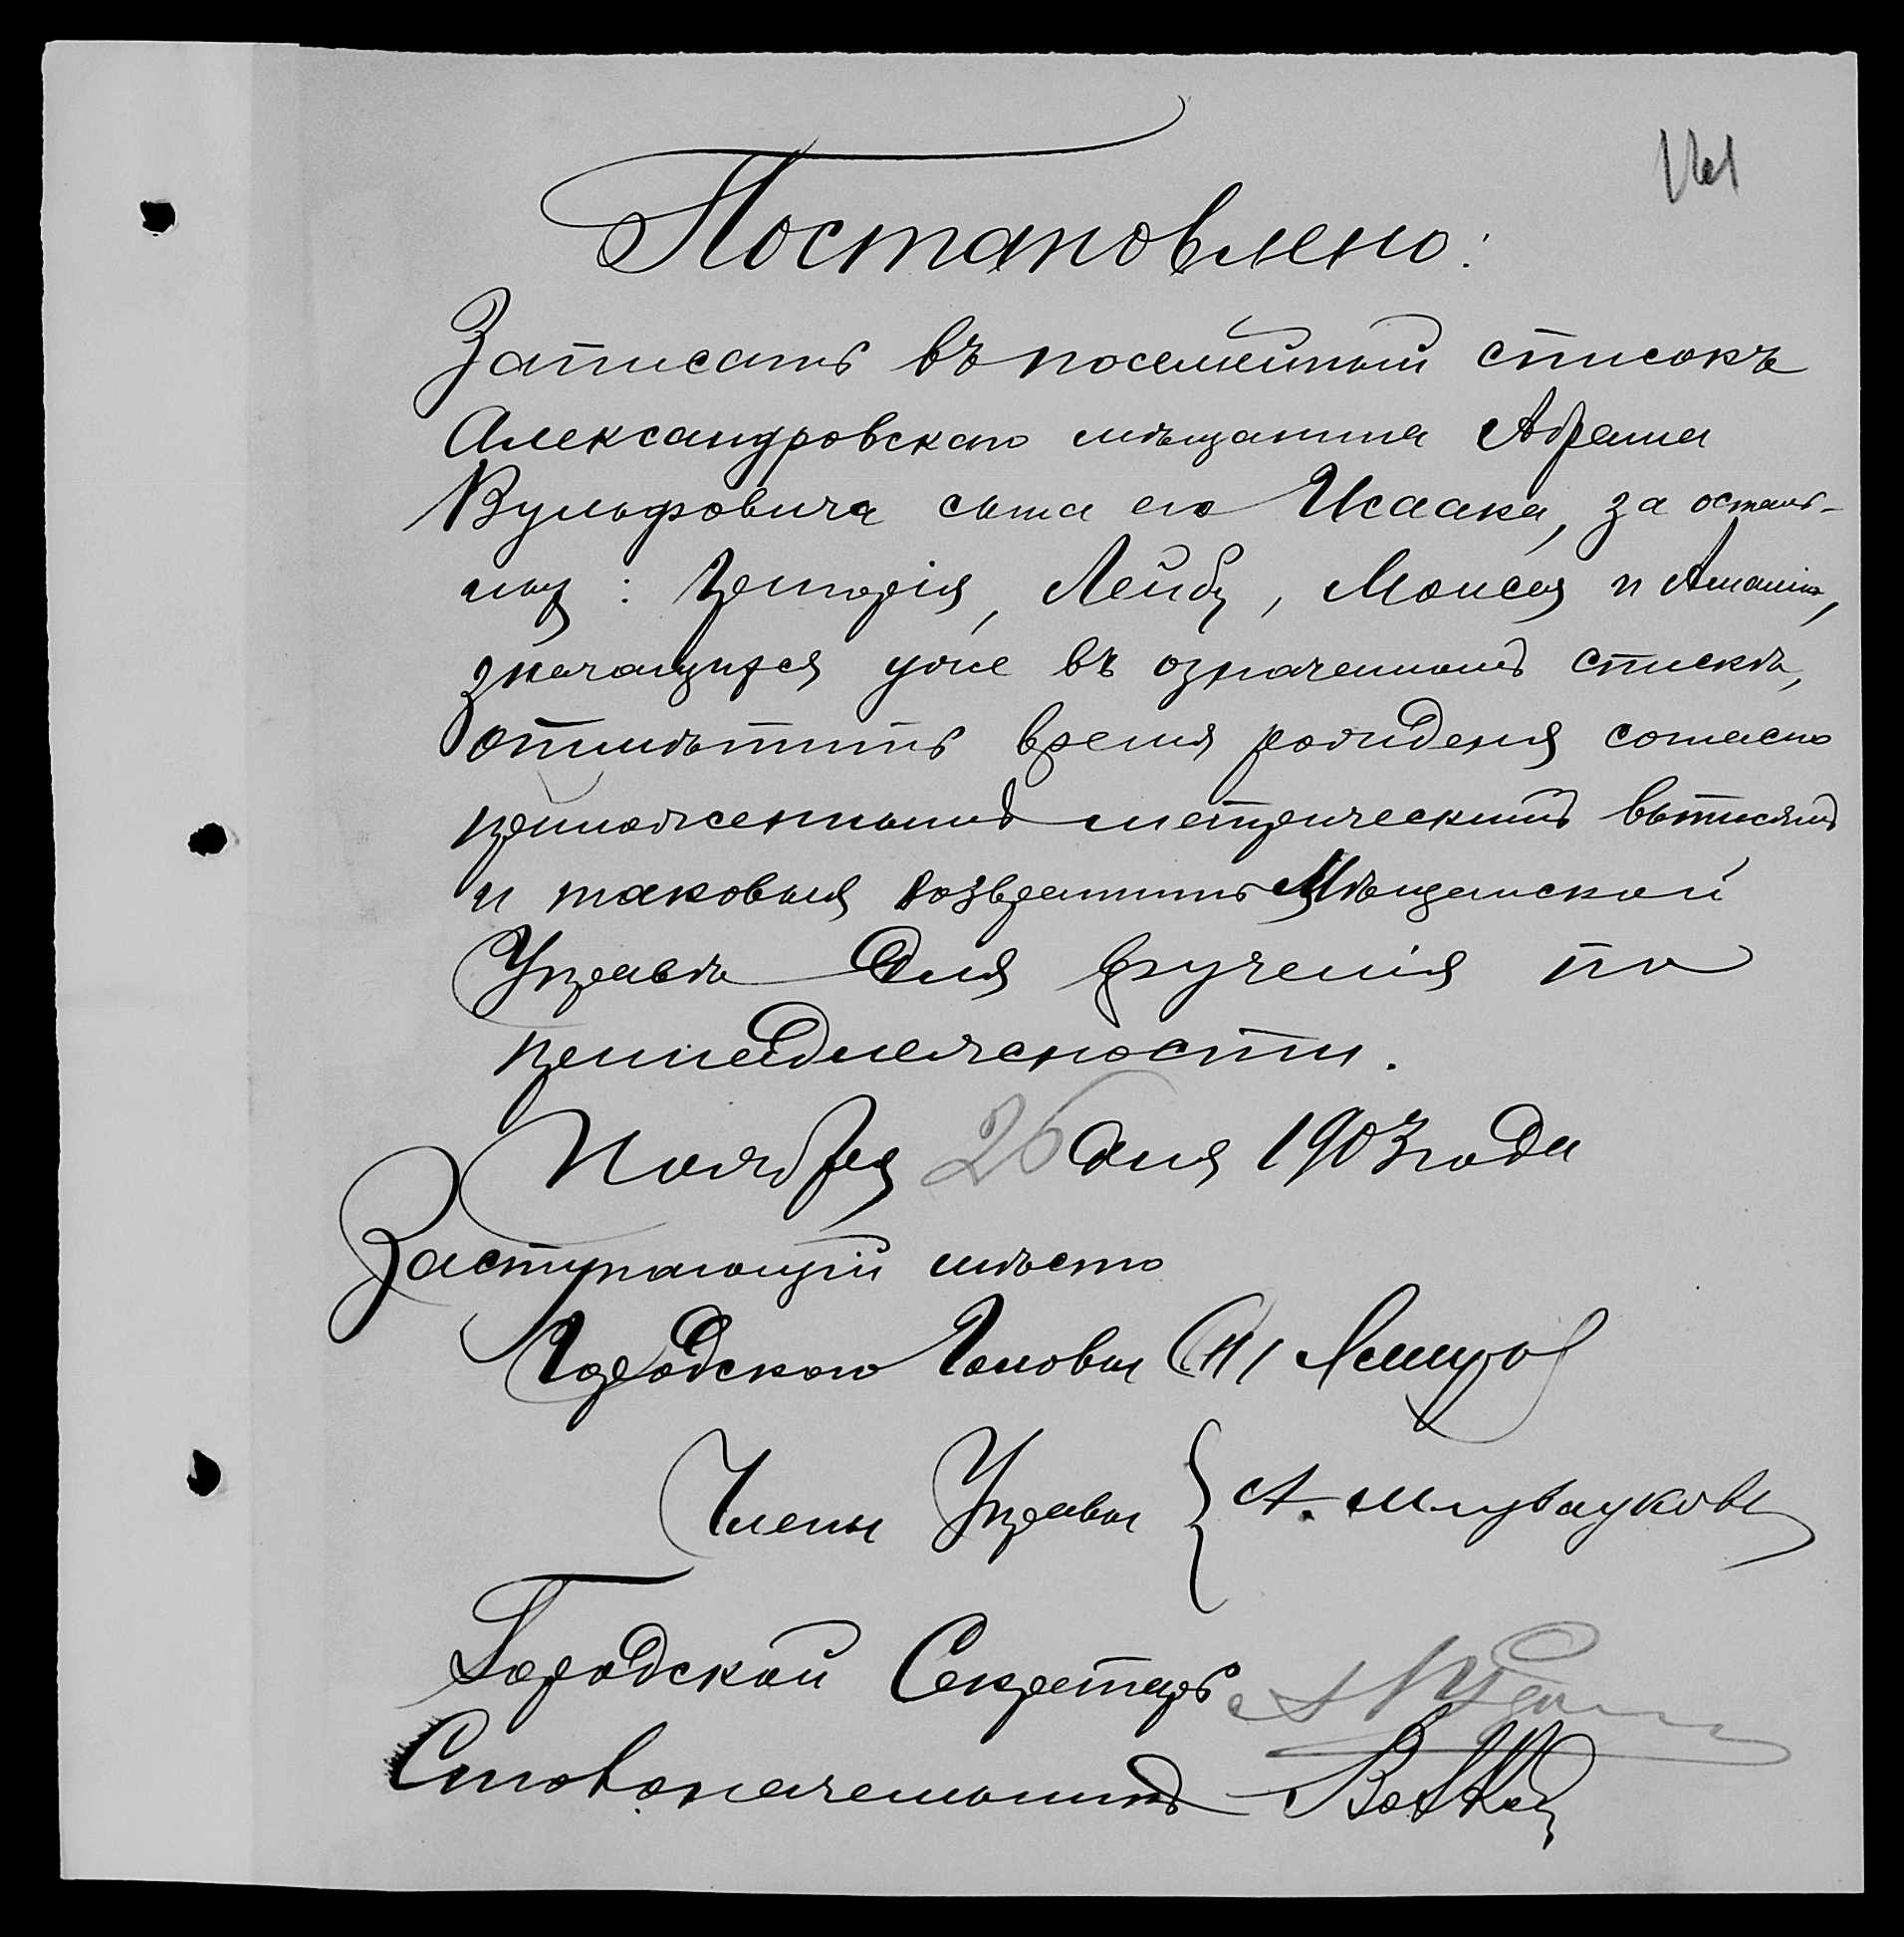 161
Постановлено:
Записать въ посемейный списокъ
Александровскаго мѣщанина Абрама
Вульфовича сына его Исаака, за осталь-
ныхъ: Григорія, Лейбу, Моисея и Ананія,
значащихся уже въ означенномъ спискѣ,
отмѣтить время рожденія согласно
приложеннымъ метрическимъ выписямъ
и таковыя возвратить Мѣщанской
Управѣ для врученія по
принадлежности.
Ноября 26 дня 1903 года
Заступающій мѣсто
Городского Головы
Члены Управы { А.
Городской Секретарь
Столоначальникъ